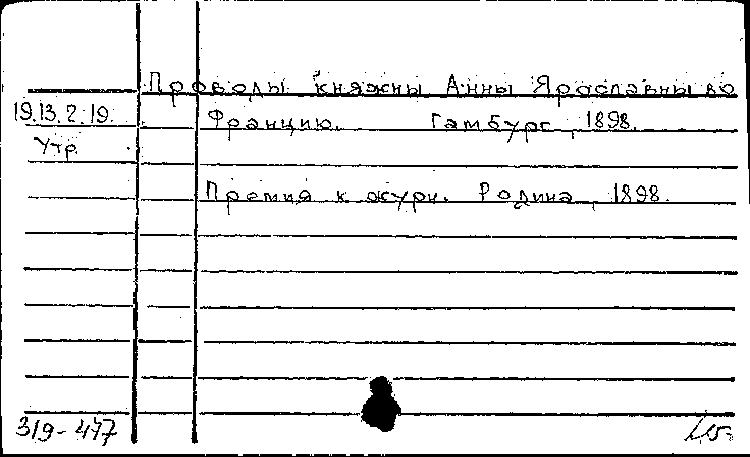 Проводы княжны Анны Ярославны во
19.13.2.19. Францию. Гамбург, 1898.
Утр.
Премия к журн. Родина, 1898.
319-447